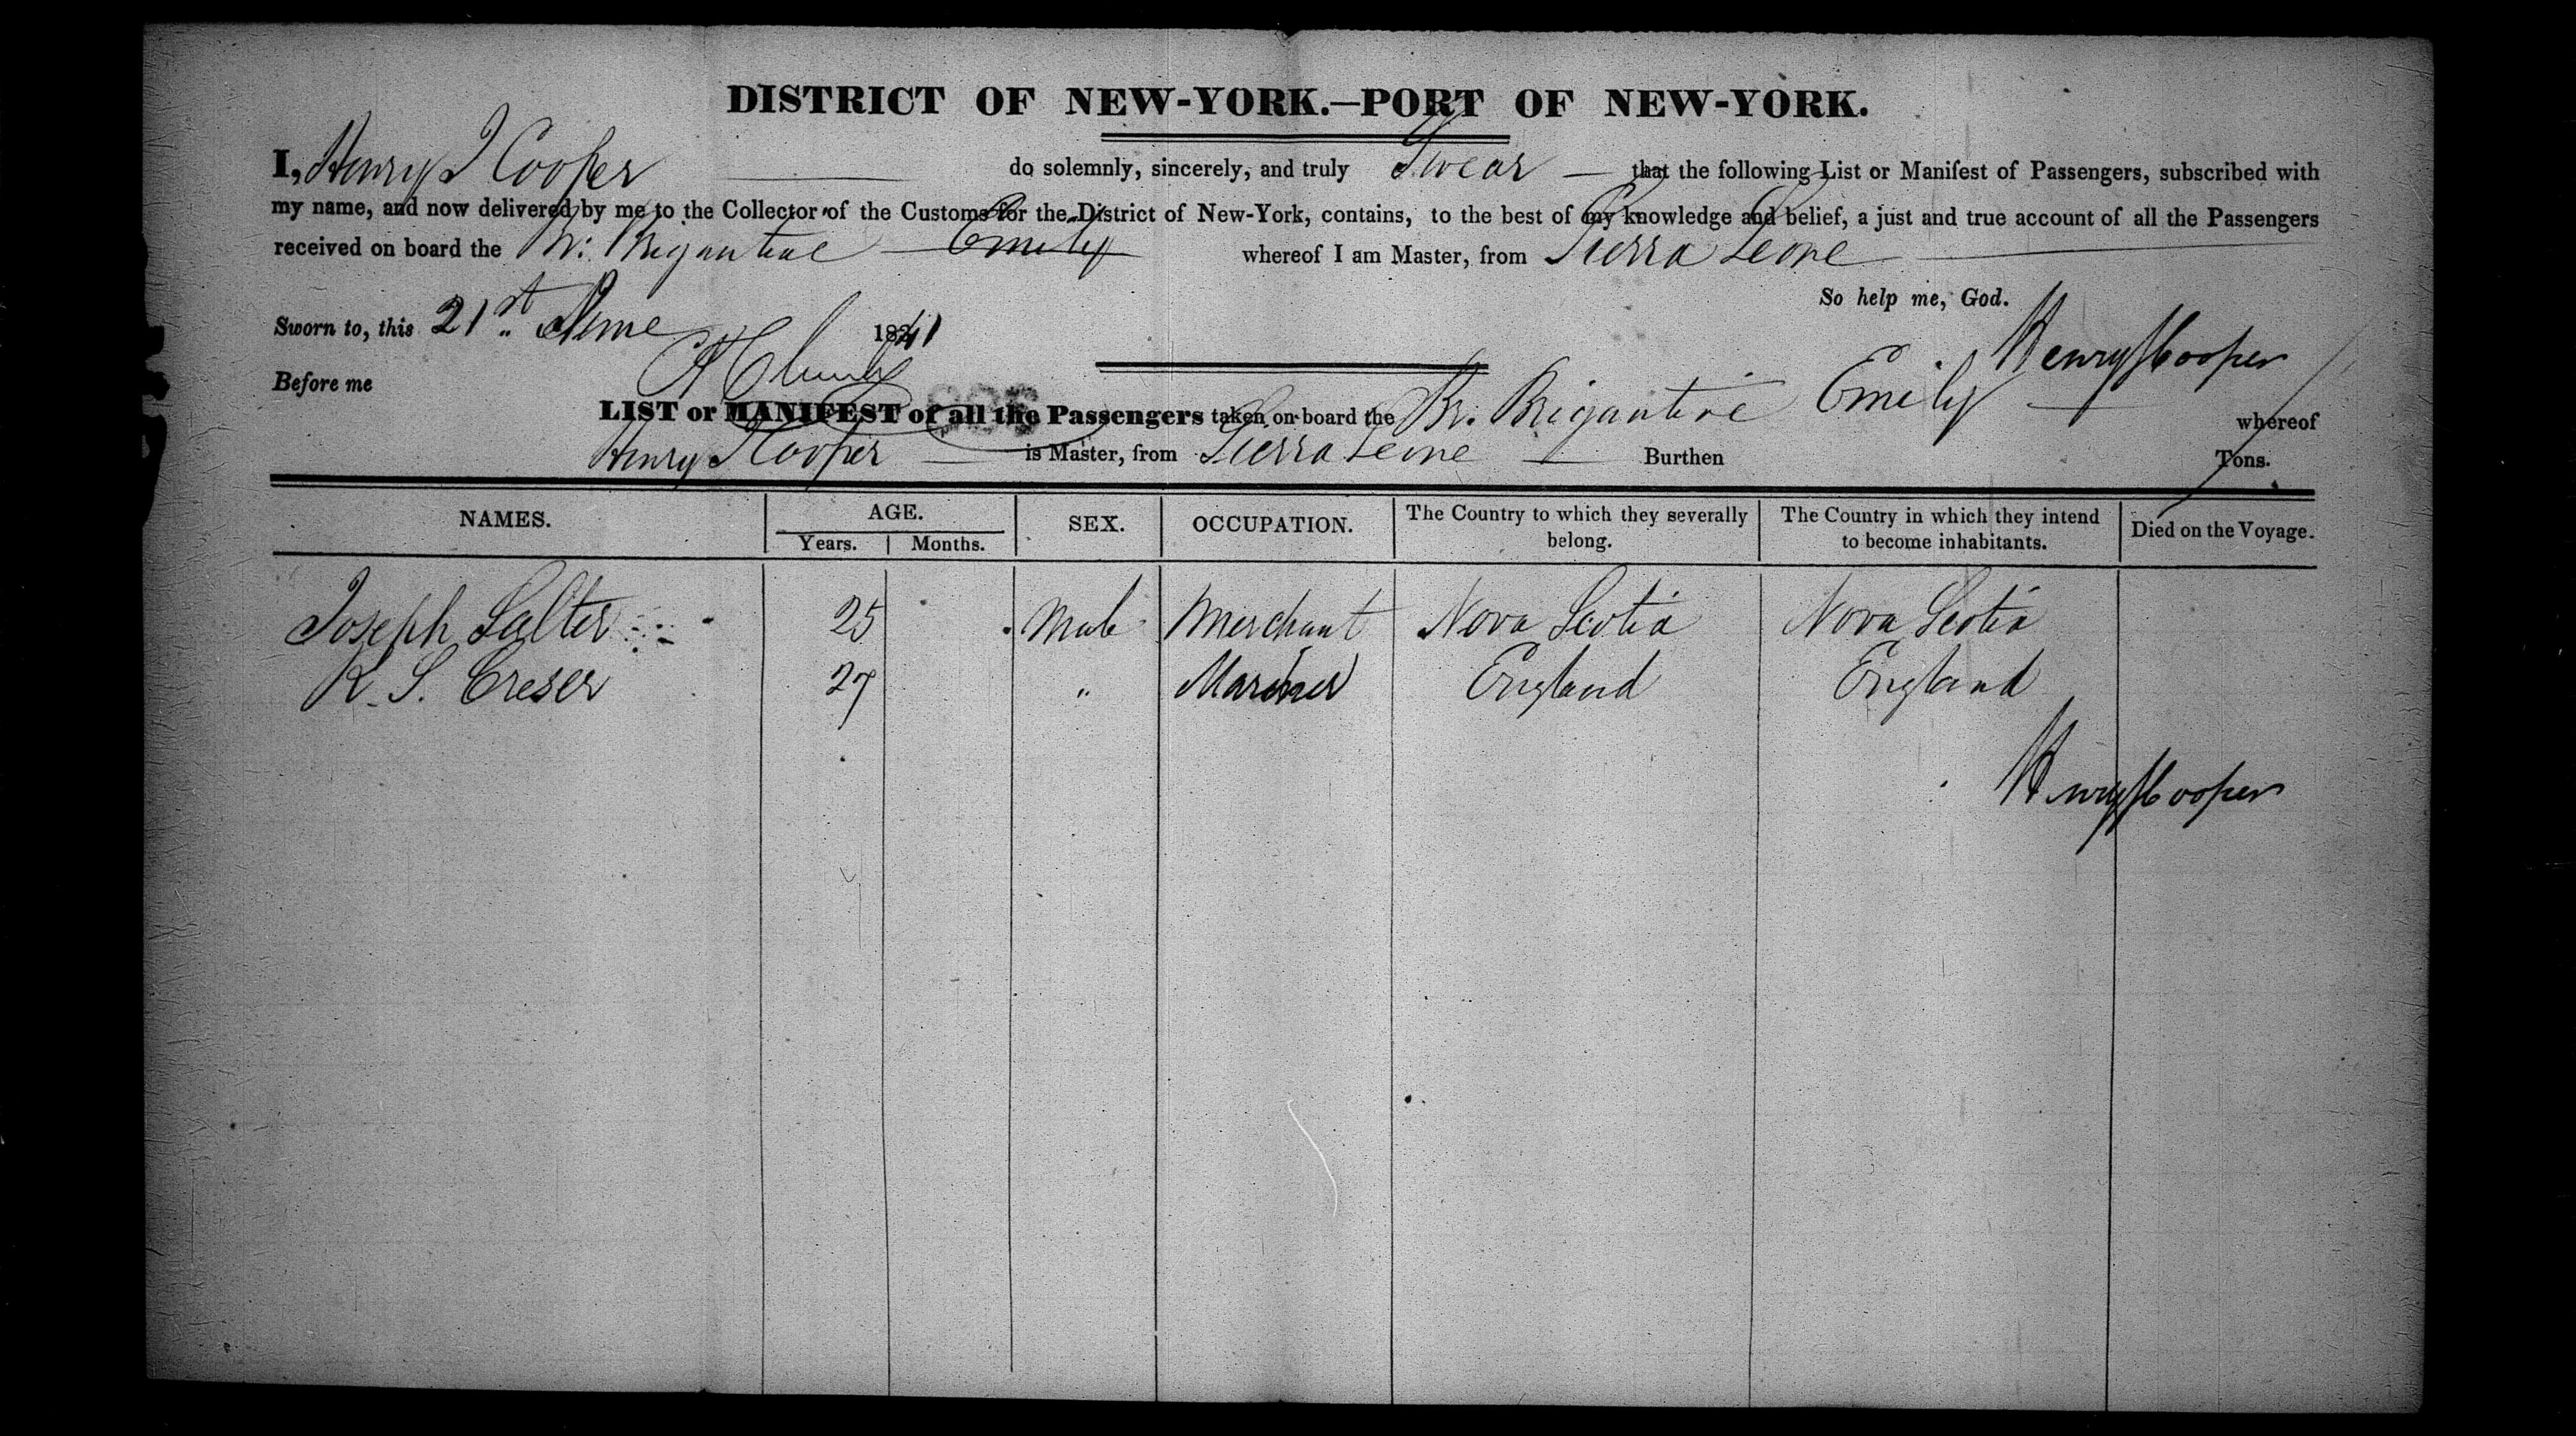 DISTRICT OF NEW-YORK.—PORT OF NEW-YORK.
I, Henry J Cooper do solemnly, sincerely, and truly Swear that the following List or Manifest of Passengers, subscribed with
my name, and now delivered by me to the Collector of the Customs for the District of New-York, contains, to the best of my knowledge and belief, a just and true account of all the Passengers
received on board the Br: Brigantine Emily whereof I am Master, from Sierra Leone
So help me, God.
Sworn to, this 21st June 1841
Henry J Cooper
Before me
LIST or MANIFEST of all the Passengers taken on board the Br. Brigantine Emily whereof
Henry J Cooper is Master, from Sierra Leone Burthen Tons.
NAMES. AGE. SEX. OCCUPATION. The Country to which they severally belong. The Country in which they intend to become inhabitants. Died on the Voyage.
Years. Months.
Joseph Salter 25 Male Merchant Nova Scotia Nova Scotia
R. S. Creser 27 " Mariner England England
Henry J Cooper